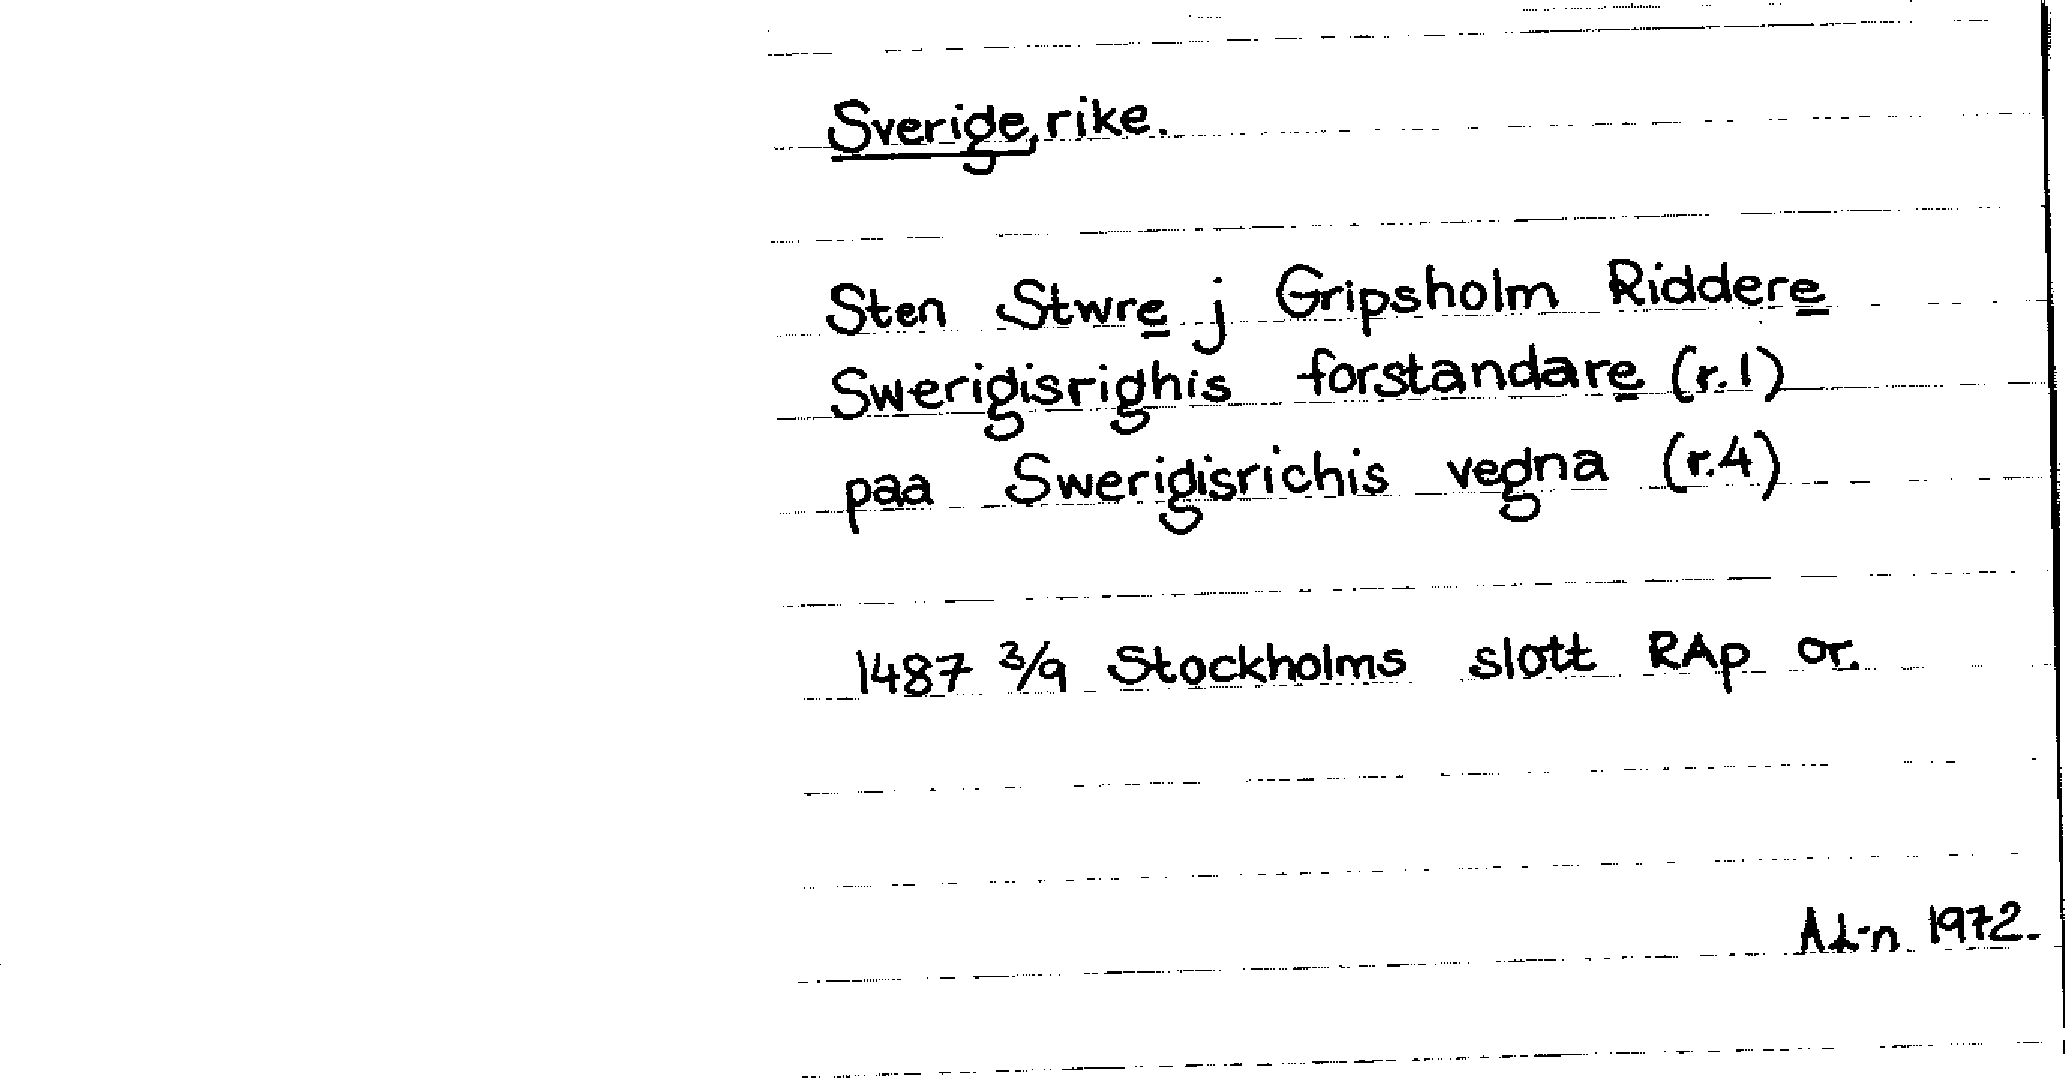 Sverige, rike.
Sten Stwre j Gripsholm Riddere
Swerigisrighis forstandare (r.1)
paa Swerigisrichis vegna (r.4)
1487 3/9 Stockholms slott RAp or.
AL-n 1972.